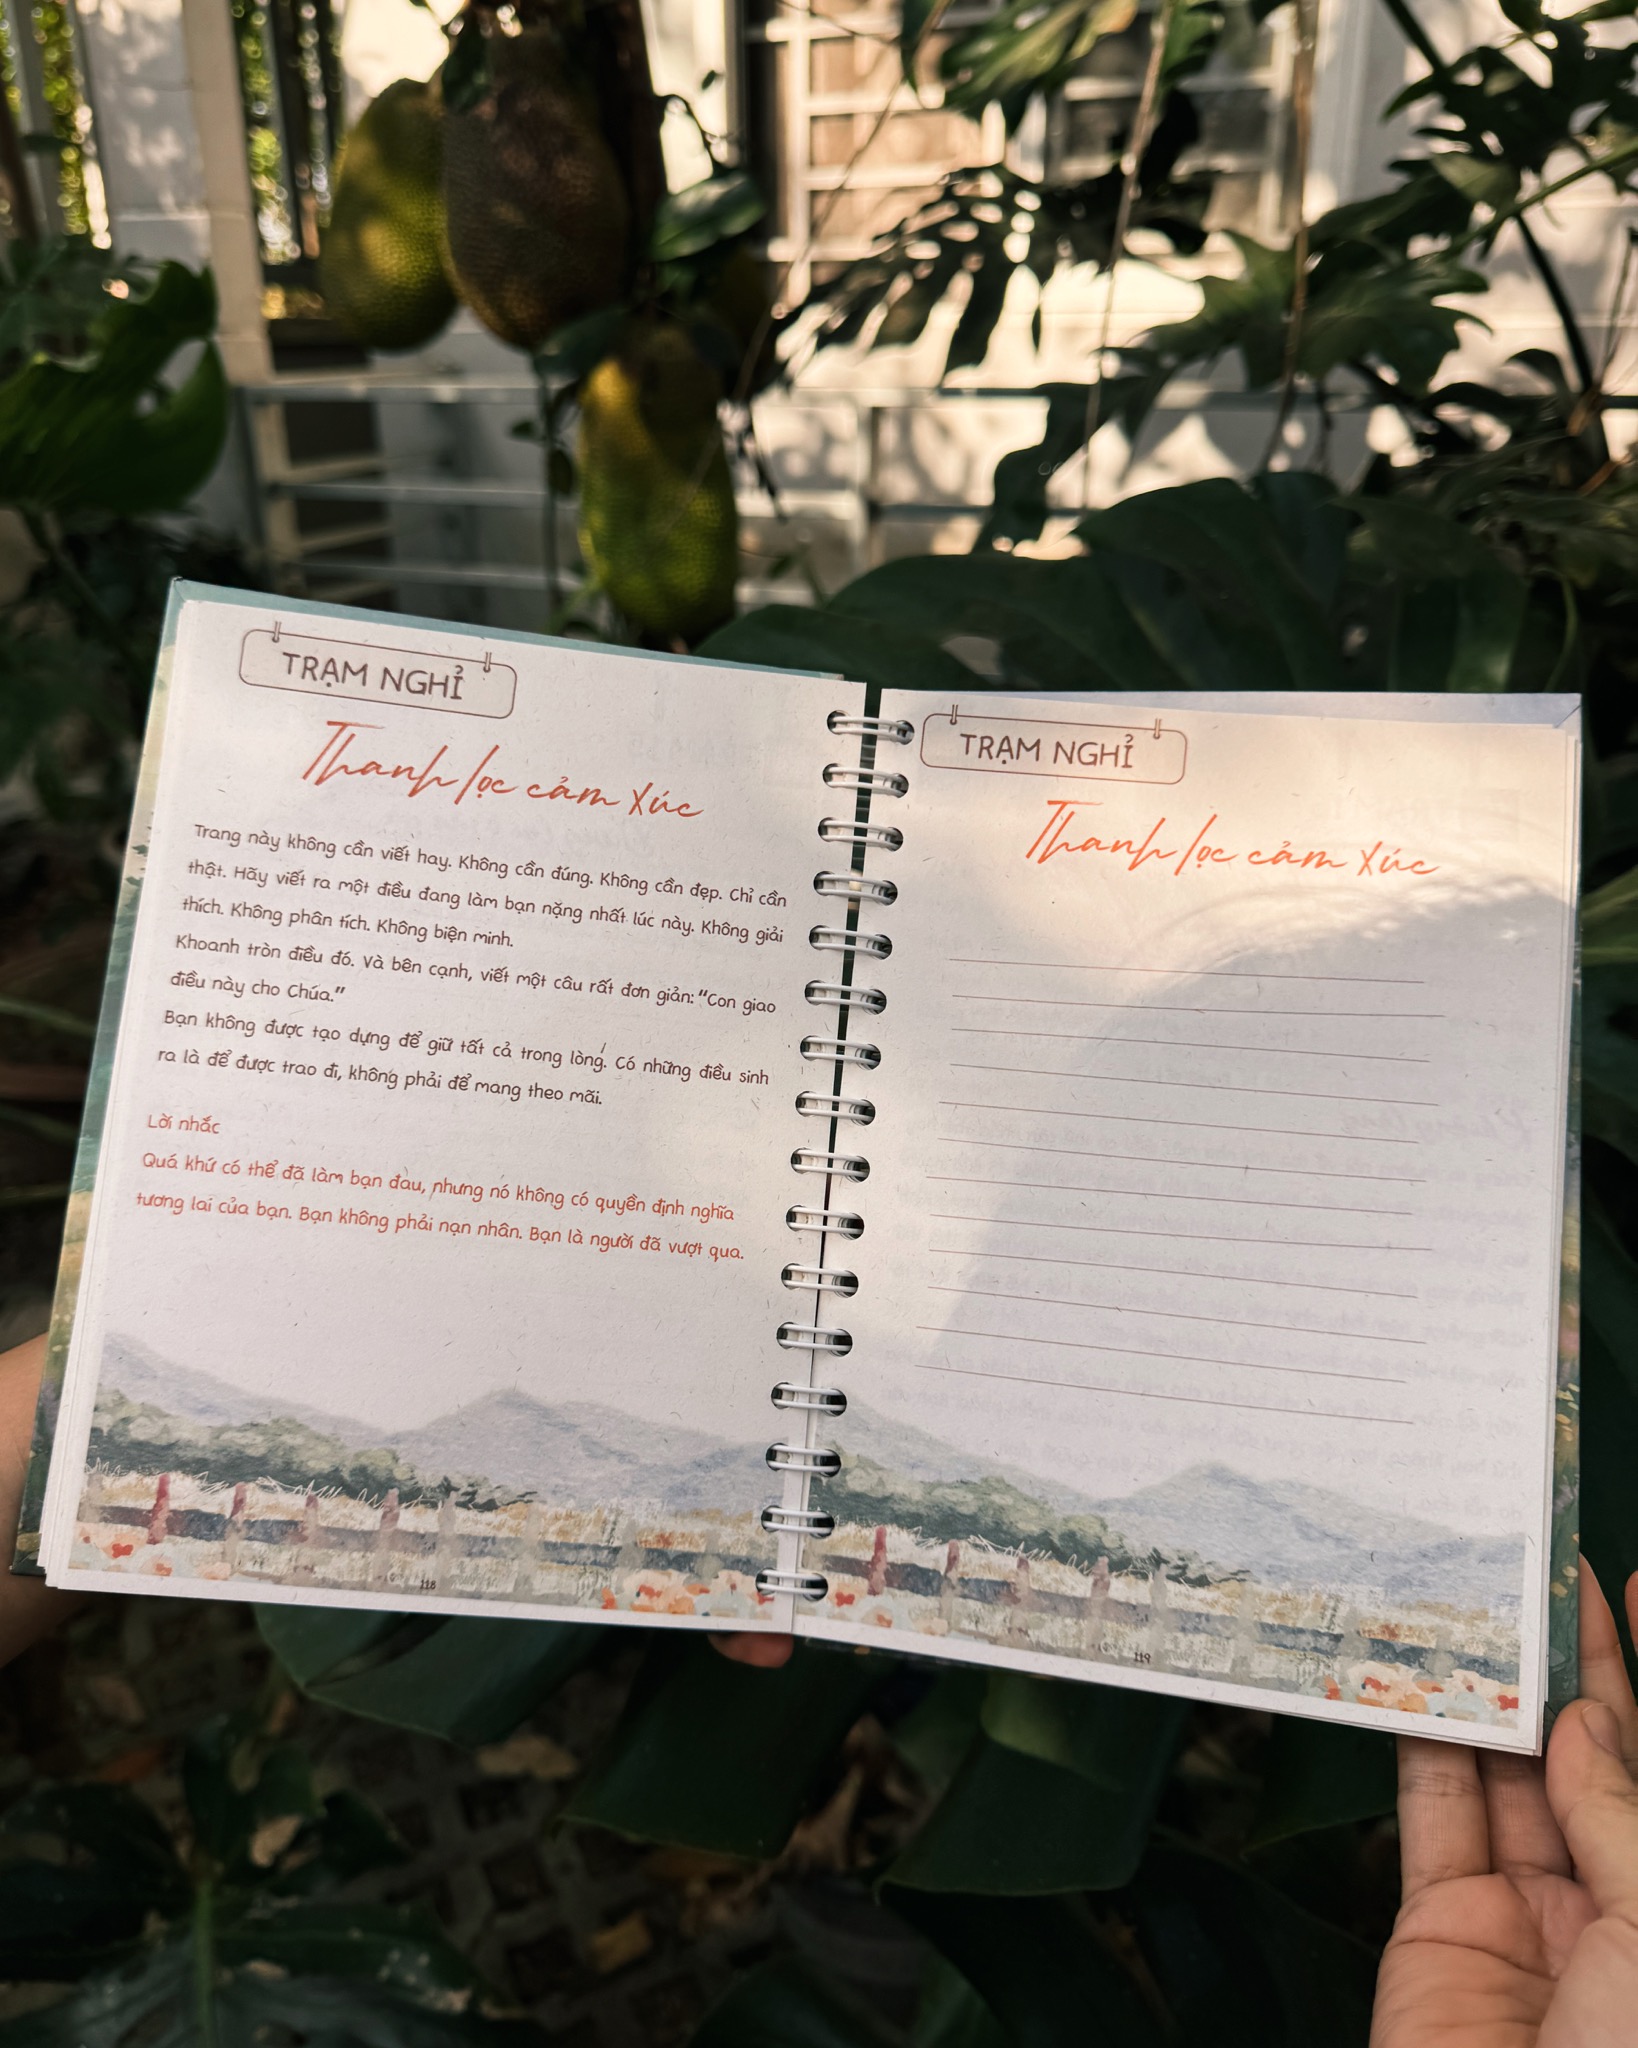 TRẠM NGHỈ
Thanh lọc cảm xúc
Trang này không cần viết hay. Không cần đúng. Không cần đẹp. Chỉ cần
thật. Hãy viết ra một điều đang làm bạn nặng nhất lúc này. Không giải
thích. Không phân tích. Không biện minh.
Khoanh tròn điều đó. Và bên cạnh, viết một câu rất đơn giản: “Con giao
điều này cho Chúa.”
Bạn không được tạo dựng để giữ tất cả trong lòng. Có những điều sinh
ra là để được trao đi, không phải để mang theo mãi.
Lời nhắc
Quá khứ có thể đã làm bạn đau, nhưng nó không có quyền định nghĩa
tương lai của bạn. Bạn không phải nạn nhân. Bạn là người đã vượt qua.
118
TRẠM NGHỈ
Thanh lọc cảm xúc
119